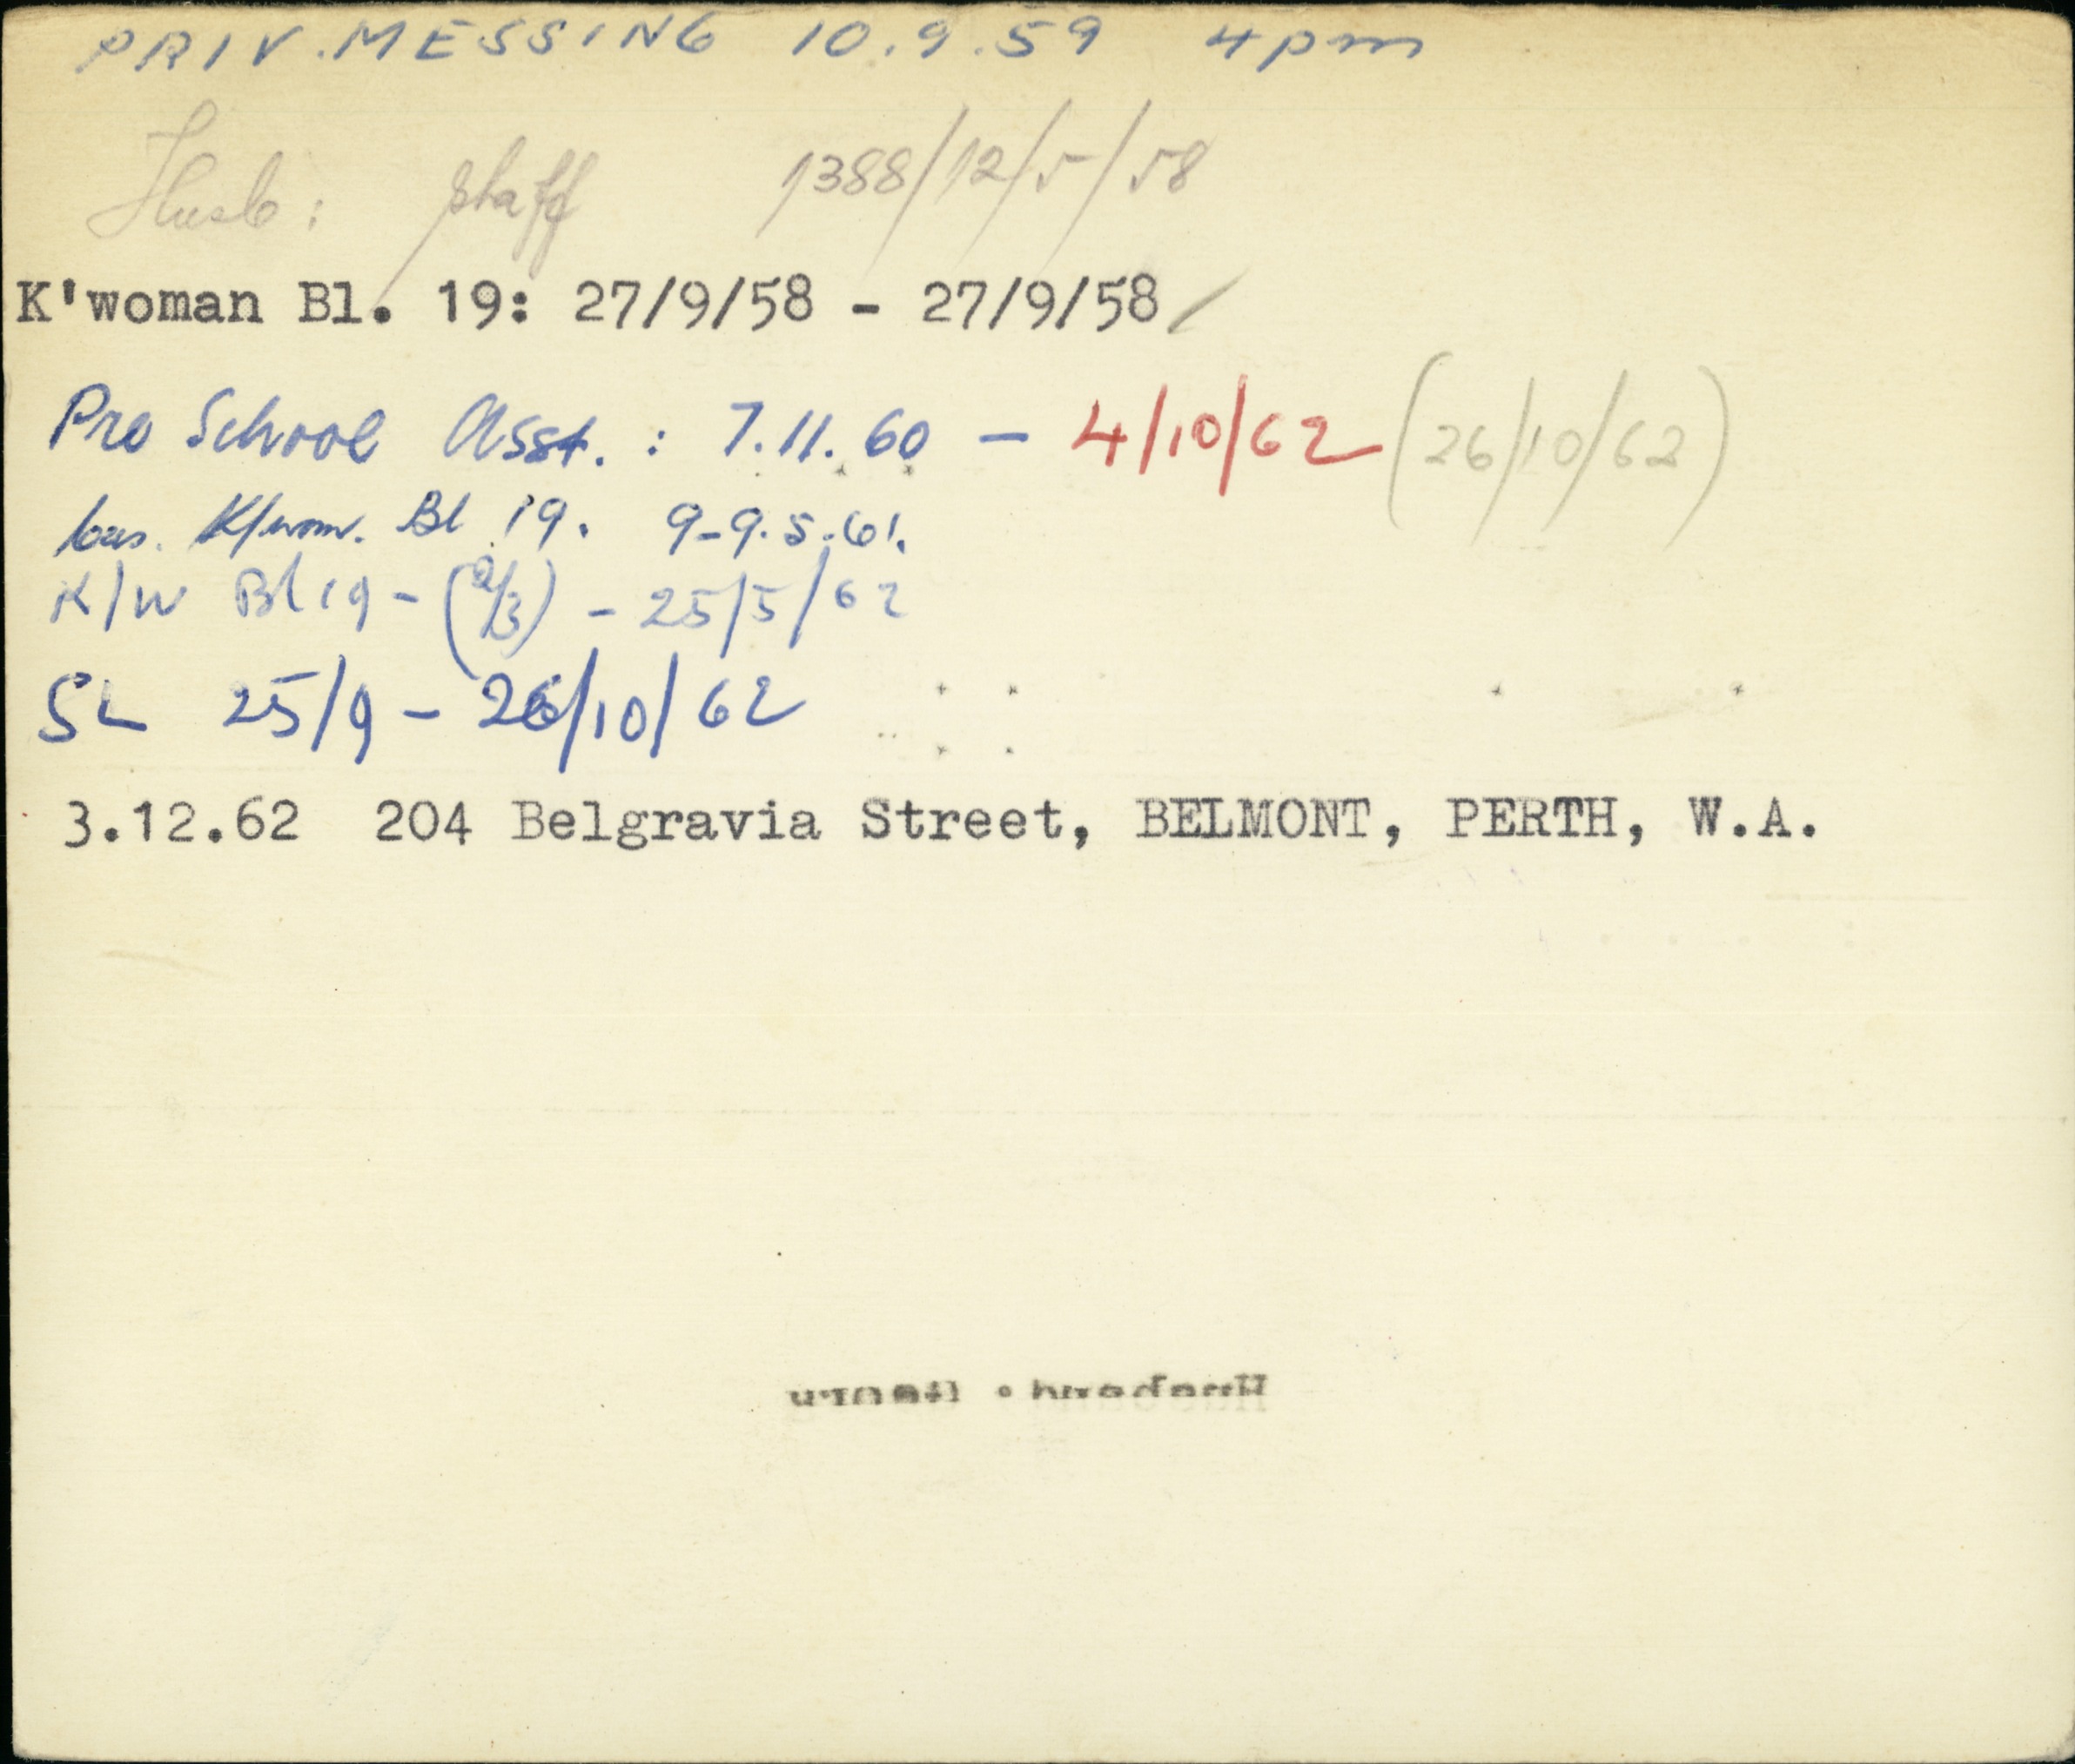 PRIV. MESSING 10.9.59 4pm
Husb: staff 1388/12/5/58
K'woman Bl. 19: 27/9/58 - 27/9/58
Pre School Asst. : 7.11.60 - 4/10/62 (26/10/62)
K/wom. Bl 19. 9-9.5.61.
K/W Bl 19 - (2/3) - 25/5/62
SL 25/9 - 26/10/62
3.12.62 204 Belgravia Street, BELMONT, PERTH, W.A.